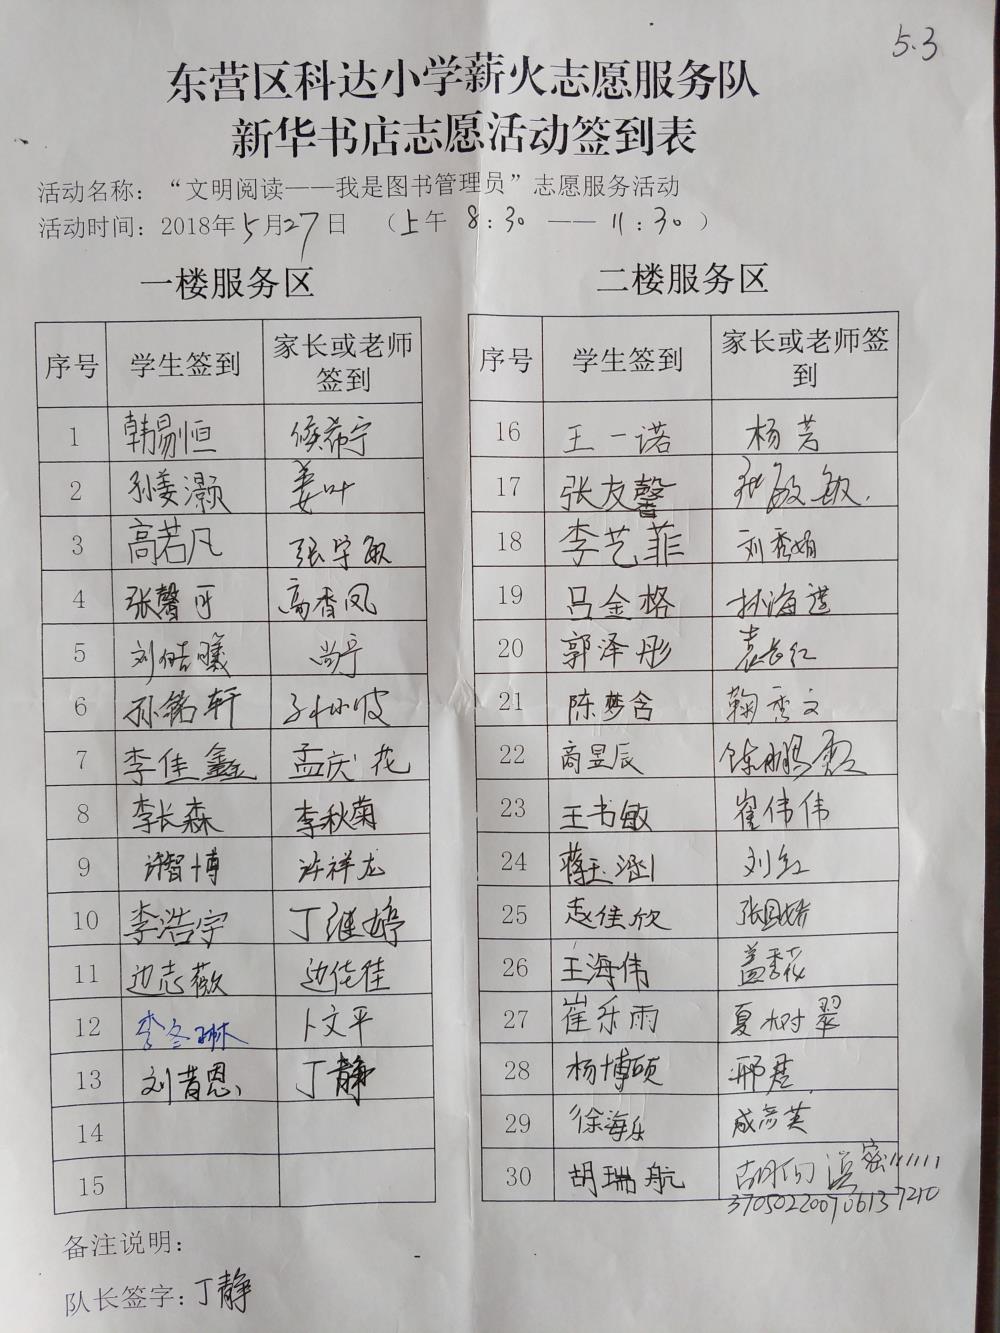 5.3
东营区科达小学薪火志愿服务队
新华书店志愿活动签到表
活动名称：“文明阅读——我是图书管理员”志愿服务活动
活动时间：2018年5月27日 （上午 8:30 —— 11:30）
一楼服务区
序号 学生签到 家长或老师签到
1 韩易恒 侯希宁
2 孙姜灏 姜叶
3 高若凡 张宇敏
4 张馨可 高香凤
5 刘皓曦 尚宁
6 孙铭轩 孙小波
7 李佳鑫 孟庆花
8 李长森 李秋菊
9 许智博 许祥龙
10 李浩宇 丁继婷
11 边志薇 边佳佳
12 李冬琳 卜文平
13 刘昔恩 丁静
14
15
二楼服务区
序号 学生签到 家长或老师签到
16 王一诺 杨芳
17 张友馨 张敏敏
18 李艺菲 刘秀娟
19 吕金格 林海莲
20 郭泽彤 袁长红
21 陈梦含 鞠秀文
22 商昱辰 陈鹏霞
23 王书敏 崔伟伟
24 蒋玉涵 刘红
25 赵佳欣
26 王海伟 盖秀花
27 崔乐雨 夏树翠
28 杨博硕 邢君
29 徐海乐 成彦英
30 胡瑞航
370502200706137210
备注说明：
队长签字：丁静